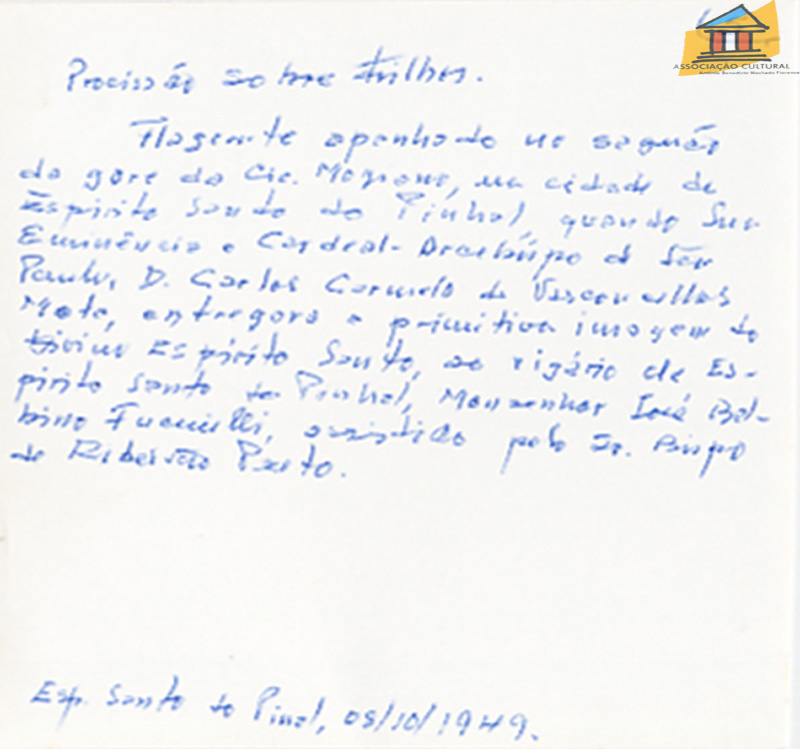 ASSOCIAÇÃO CULTURAL
Antonio Benedicto Machado Florence
Procissão sobre trilhos.
Flagrante apanhado no saguão
da gare da Cia. Mogiana, na cidade de
Espírito Santo do Pinhal, quando Sua
Eminência o Cardeal-Arcebispo de São
Paulo, D. Carlos Carmelo de Vasconcellos
Mota, entregara a primitiva imagem do
Divino Espírito Santo, ao vigário de Es-
pírito Santo do Pinhal, Monsenhor José Bal-
bino Fucciolli, assistido pelo Sr. Bispo
de Ribeirão Preto.
Esp. Santo do Pinal, 08/10/1949.